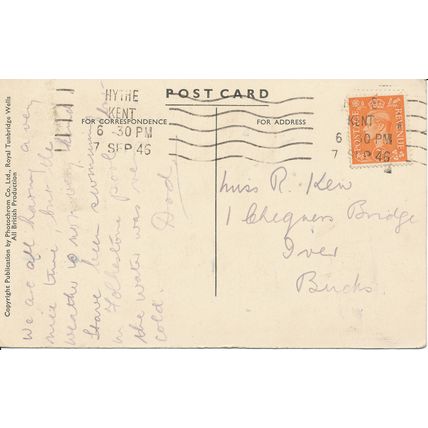 POST CARD
FOR CORRESPONDENCE
FOR ADDRESS
HYTHE
KENT
6-30 PM
7 SEP 46
KENT
6 30 PM
7 SEP 46
POSTAGE
REVENUE
Copyright Publication by Photochrom Co., Ltd., Royal Tunbridge Wells
All British Production
We are all having a very
nice time, but the
weather is not very
Have been swimming
in Folkestone pool
the water was
cold. Dad.
Miss R. Kew
1 Chequers Bridge
Iver
Bucks.